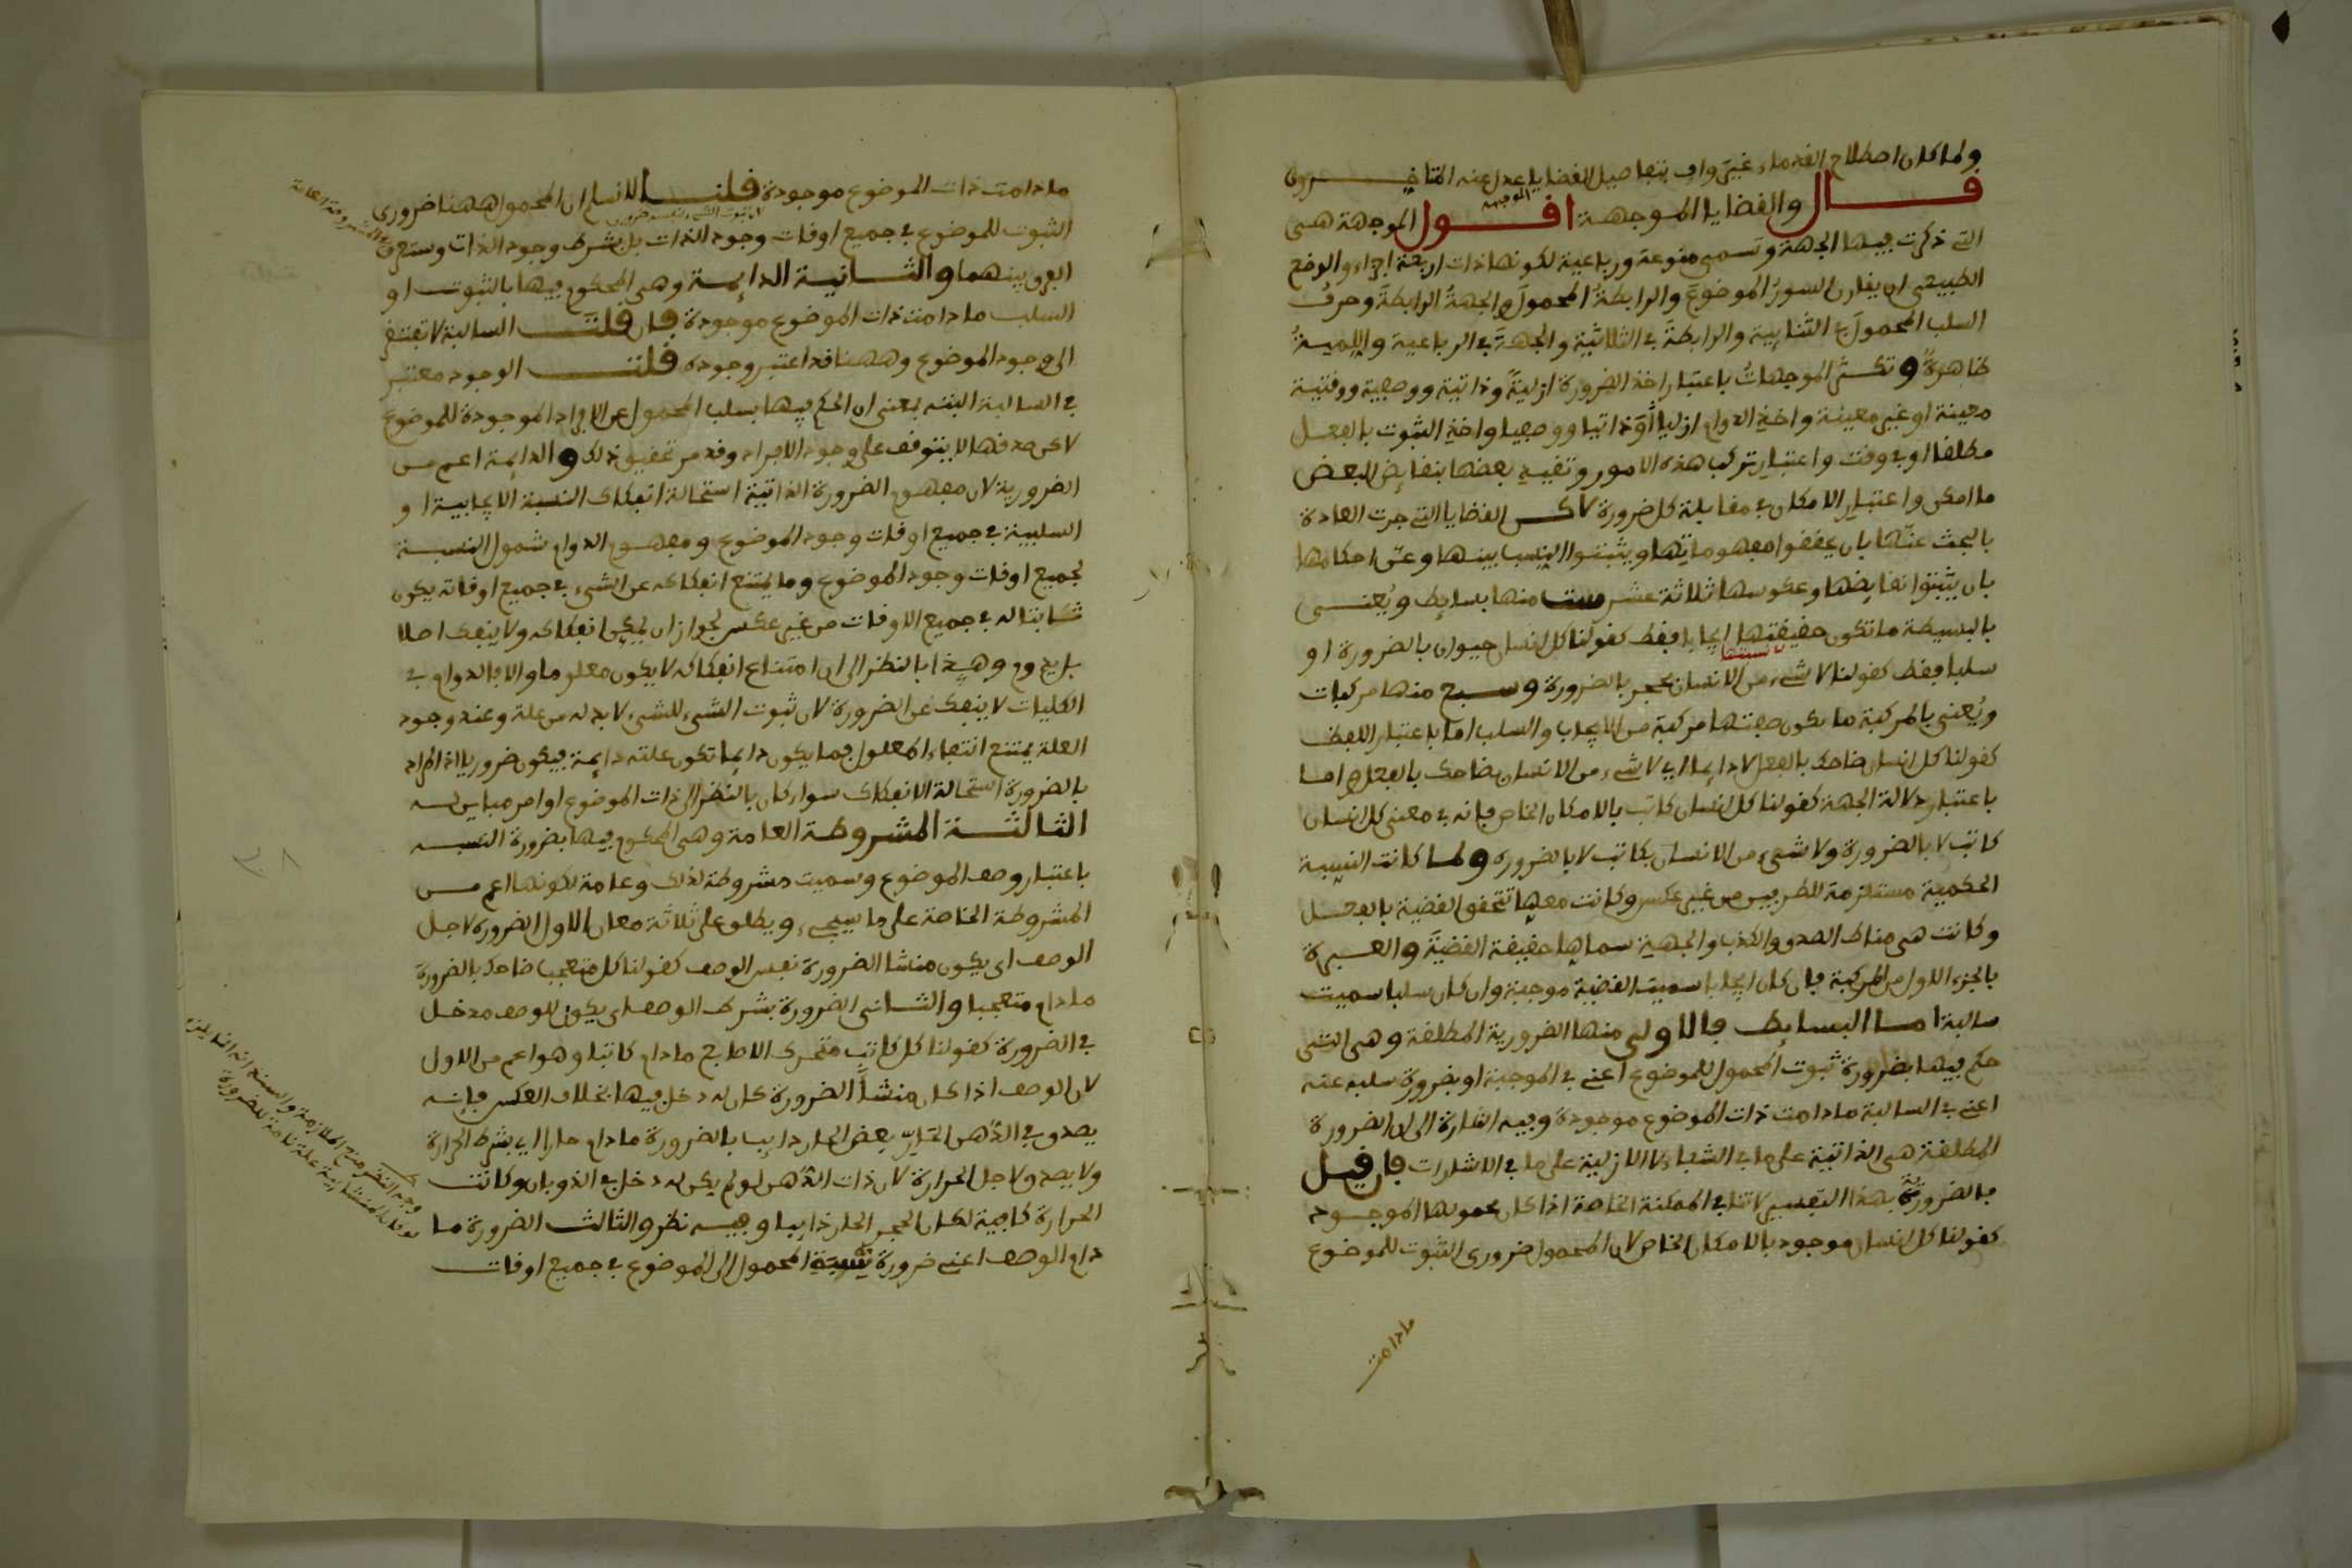 ولما كان اصطلاح القدماء غير واف بتفاصيل القضايا عدل عنه المتاخرون
قال والقضايا الموجهة اقول الموجهة هي
الموجهة
التي ذكرت فيها الجهة وتسمى منوعة ورباعية لكونها ذات اربعة اجزاء والوضع
الطبيعي ان يقارن السورُ الموضوعَ والرابطةُ المحمولَ والجهةُ الرابطةَ وحرفُ
السلب المحمولَ في الثنائية والرابطةَ في الثلاثية والجهةَ في الرباعية واللميةُ
ظاهرةٌ وتكثر الموجهاتُ باعتبار اخذ الضرورة ازليةً وذاتية ووصفية ووقتية
معينة او غير معينة واخذِ الدوام ازلياً أو ذاتيا ووصفيا واخذِ الثبوت بالفعل
مطلقا او في وقت واعتبارِ تركب هذه الامور وتقييدِ بعضها بنقائض البعض
ما امكن واعتبارِ الامكان في مقابلة كل ضرورة لاكن القضايا التي جرت العادة
بالبحث عنها بان يحققوا مفهوماتها ويثبتوا النسب بينها وعن احكامها
بان يثبتوا نقائضها وعكوسها ثلاثة عشر ست منها بسايط ويُعنى
بالبسيطة ما تكون حقيقتها ايجابا فقط كقولنا كل انسان حيوان بالضرورة او
سلبا فقط كقولنا لا شيء من الانسان بحجر بالضرورة وسبع منها مركبات
ويُعنى بالمركبة ما تكون حقيقتها مركبة من الايجاب والسلب اما باعتبار اللفظ
كقولنا كل انسان ضاحك بالفعل لا دايما اي لا شيء من الانسان بضاحك بالفعل واما
باعتبار دلالة الجهة كقولنا كل انسان كاتب بالامكان الخاص فانه في معنى كل انسان
كاتب لا بالضرورة ولا شيء من الانسان بكاتب لا بالضرورة ولما كانت النسبة
الحكمية مستلزمة للطرفين من غير عكس وكانت معها تتحقق القضية بالفعل
وكانت هي مناط الصدق والكذب والجهة سماها حقيقة القضية والعبرة
بالجزء الاول من المركبة فان كان ايجابا سميت القضية موجبة وان كان سلبا سميت
سالبة اما البسايط فالاولى منها الضرورية المطلقة وهي التي
حكم فيها بضرورة ثبوت المحمول للموضوع اعني في الموجبة او بضرورة سلبه عنه
اعني في السالبة ما دامت ذات الموضوع موجودة وفيه اشارة الى ان الضرورة
المطلقة هي الذاتية على ما في الشفاء لا الازلية على ما في الاشارات فان قيل
فالضرورة بهذا التفسير لا تنافي الممكنة الخاصة اذا كان محمولها الموجود
كقولنا كل انسان موجود بالامكان الخاص لان المحمول ضروري الثبوت للموضوع
ما دامت
ما دامت ذات الموضوع موجودة قلنا لا نسلم ان المحمول ههنا ضروري
الثبوت للموضوع في جميع اوقات وجود الذات بل بشرط وجود الذات وستعرف
الفرق بينهما والثانية الدايمة وهي المحكوم فيها بالثبوت او
السلب ما دامت ذات الموضوع موجودة فان قلت السالبة لا تفتقر
الى وجود الموضوع وههنا قد اعتبر وجوده قلت الوجود معتبر
في السالبة البتة بمعنى ان الحكم فيها بسلب المحمول عن الافراد الموجودة للموضوع
لاكن صدقها لا يتوقف على وجود الافراد وقد مر تحقيق ذلك والدايمة اعم من
الضرورية لان مفهوم الضرورة الذاتية استحالة انفكاك النسبة الايجابية او
السلبية في جميع اوقات وجود الموضوع ومفهوم الدوام شمول النسبة
لجميع اوقات وجود الموضوع وما يمتنع انفكاكه عن الشيء في جميع اوقاته يكون
ثابتا له في جميع الاوقات من غير عكس لجواز ان يمكن انفكاكه ولا ينفك اصلا
بل يدوم وهذا بالنظر الى ان امتناع انفكاكه لا يكون معلوما والا فالدوام في
الكليات لا ينفك عن الضرورة لان ثبوت الشيء للشيء لا بد له من علة وعند وجود
العلة يمتنع انتفاء المعلول فما يكون دايما تكون علته دايمة فيكون ضروريا اذ المراد
بالضرورة استحالة الانفكاك سواء كان بالنظر الى ذات الموضوع او امر مباين له
الثالثة المشروطة العامة وهي المحكوم فيها بضرورة النسبة
باعتبار وصف الموضوع وسميت مشروطة لذلك وعامة لكونها اعم من
المشروطة الخاصة على ما سيجيء ويطلق على ثلاثة معان الاول الضرورة لاجل
الوصف اي يكون منشا الضرورة نفس الوصف كقولنا كل متعجب ضاحك بالضرورة
ما دام متعجبا والثاني الضرورة بشرط الوصف اي يكون للوصف مدخل
في الضرورة كقولنا كل كاتب متحرك الاصابع ما دام كاتبا وهو اعم من الاول
لان الوصف اذا كان منشأ الضرورة كان له دخل فيها بخلاف العكس فإنه
يصدق في الدهن الحارّ بعض الحار ذايب بالضرورة ما دام حارا اي بشرط الحرارة
ولا يصدق لاجل الحرارة لان ذات الدهن لو لم يكن له دخل في الذوبان وكانت
الحرارة كافية لكان الحجر الحار ذايبا وفيه نظر والثالث الضرورة ما
دام الوصف اعني ضرورة نسبة المحمول الى الموضوع في جميع اوقات